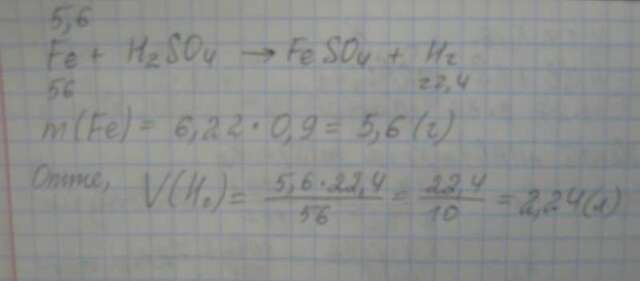 5,6
Fe + H₂SO₄ → FeSO₄ + H₂
56 22,4
m(Fe) = 6,22 · 0,9 = 5,6 (г)
Отже, V(H₂) = 5,6·22,4/56 = 22,4/10 = 2,24(л)